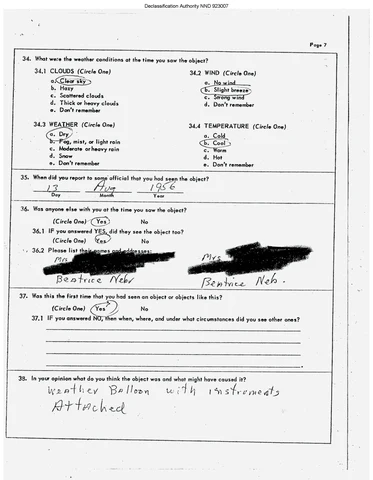 Declassification Authority NND 923007
Page 7
34. What were the weather conditions at the time you saw the object?
34.1 CLOUDS (Circle One)
a. Clear sky
b. Hazy
c. Scattered clouds
d. Thick or heavy clouds
e. Don't remember
34.2 WIND (Circle One)
a. No wind
b. Slight breeze
c. Strong wind
d. Don't remember
34.3 WEATHER (Circle One)
a. Dry
b. Fog, mist, or light rain
c. Moderate or heavy rain
d. Snow
e. Don't remember
34.4 TEMPERATURE (Circle One)
a. Cold
b. Cool
c. Warm
d. Hot
e. Don't remember
35. When did you report to some official that you had seen the object?
13 Aug 1956
Day Month Year
36. Was anyone else with you at the time you saw the object?
(Circle One) Yes No
36.1 IF you answered YES, did they see the object too?
(Circle One) Yes No
36.2 Please list their names and addresses:
Mrs
Beatrice Nebr
Mrs
Beatrice Neb.
37. Was this the first time that you had seen an object or objects like this?
(Circle One) Yes No
37.1 IF you answered NO, then when, where, and under what circumstances did you see other ones?
38. In your opinion what do you think the object was and what might have caused it?
Weather Balloon with instruments
Attached